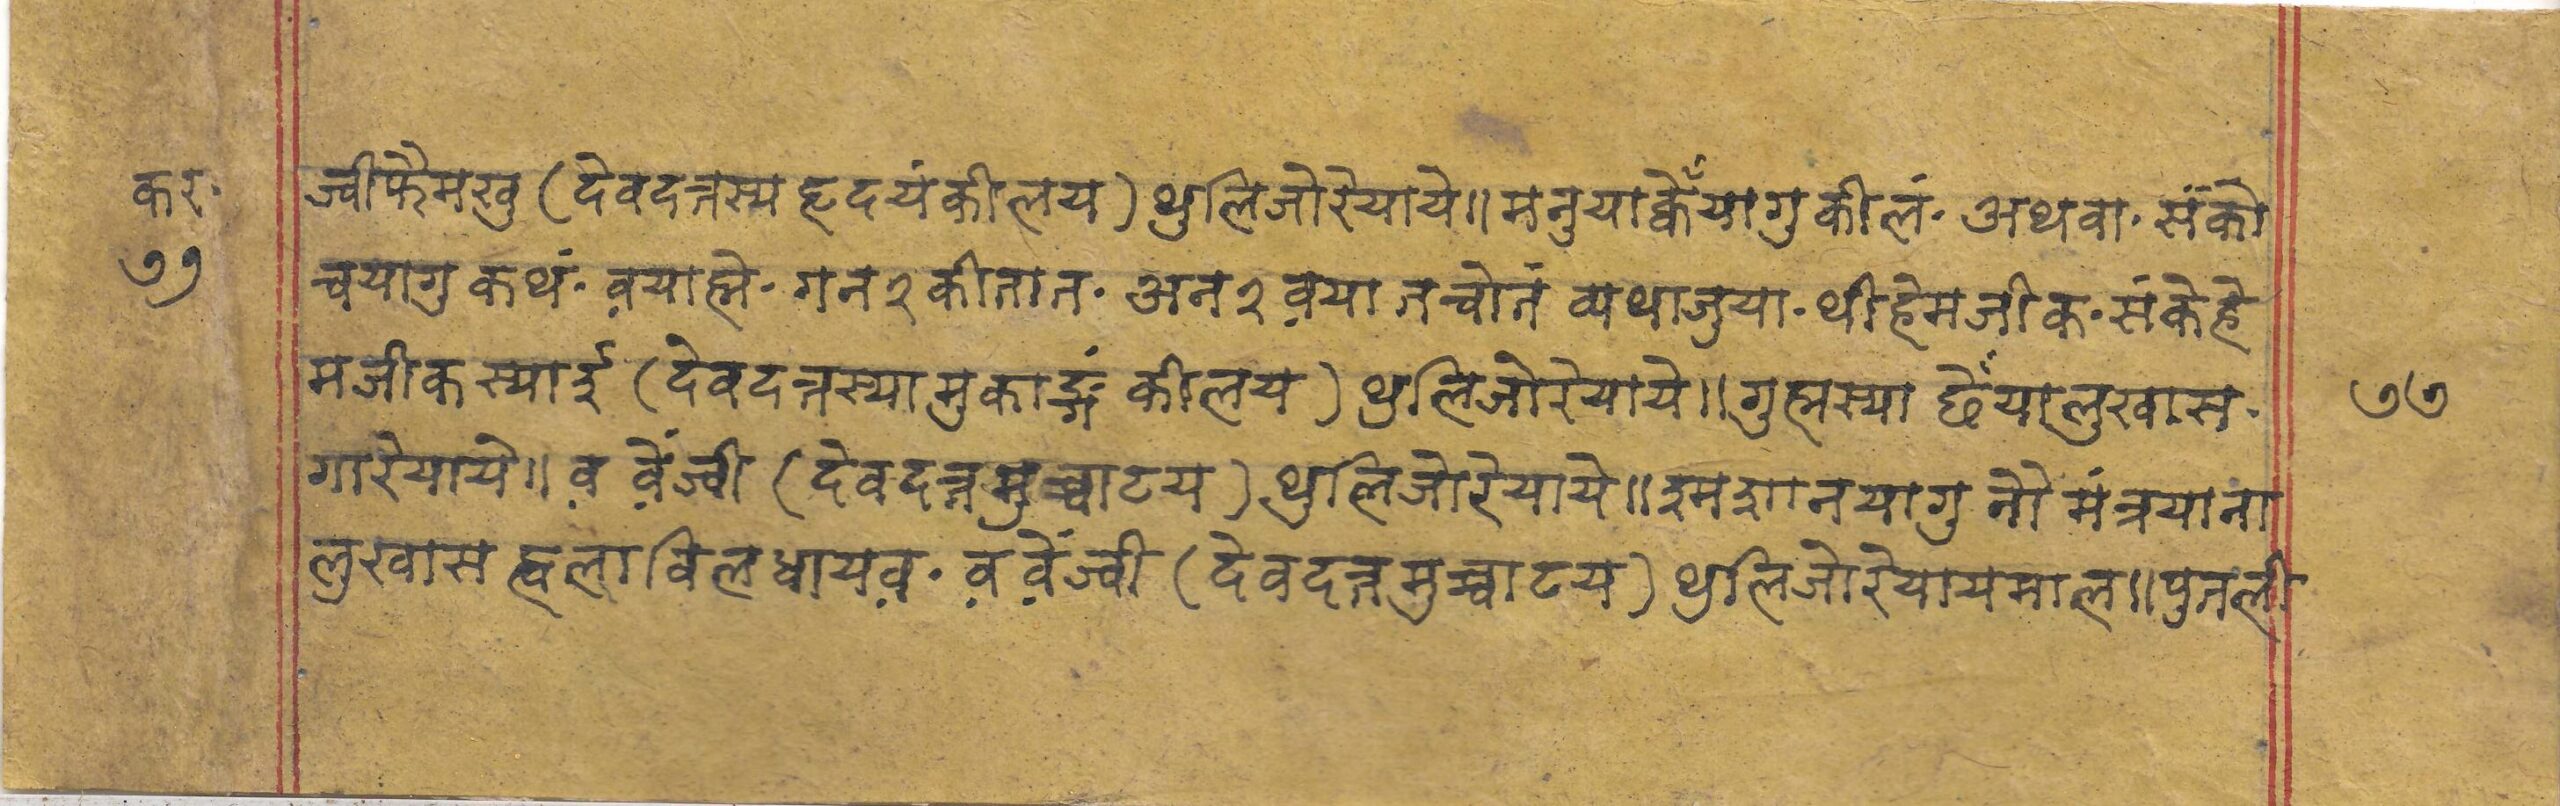 कर॰ ज्वीफैमखु (देवदत्तस्य हृदयंकीलय) थुलिजोरेयाये॥ मनुयाक्वेँयागु कीलं॰ अथवा॰ संको
७७ चयागु कथं॰ व़याह्मे॰ गन२कीतान॰ अन२व़यातचोतं व्यथाजुया॰ थीहेमजीक॰ संकेहे
मजीकस्याई (देवदत्तस्यामुकाङ्गं कीलय) थुलिजोरेयाये॥ गुह्मस्या छेँयालुखास॰ ७७
गारेयाये॥ व़ व़ेंज्वी (देवदत्तमुच्चाटय) थुलिजोरेयाये॥ श्मशानयागु नौ मंत्रयाना
लुखास ह्वलाविलधायव़॰ व़ व़ेंज्वी (देवदत्तमुच्चाटय) थुलिजोरेयायमाल॥ पुतली